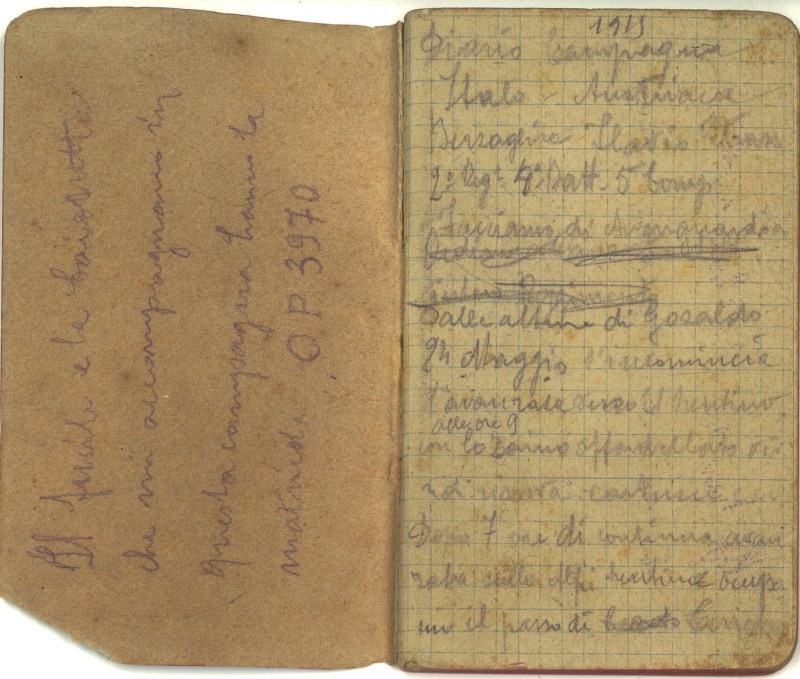 Il fucile e la baionetta
che mi accompagnano in
questa campagna hanno la
matricola O P 3970
1915
Diario Campagna
Italo - Austriaca
Bersagliere
2° Regt 4° Batt. 5 Comp.
Facciamo di Avanguardia
Dalle alture di Gosaldo
24 Maggio s'incomincia
l'avanzata verso il trentino
alle ore 9
con lo zaino affardellato di
Dopo 7 ore di continua avan
zata sulle Alpi trentine occupa
il passo di